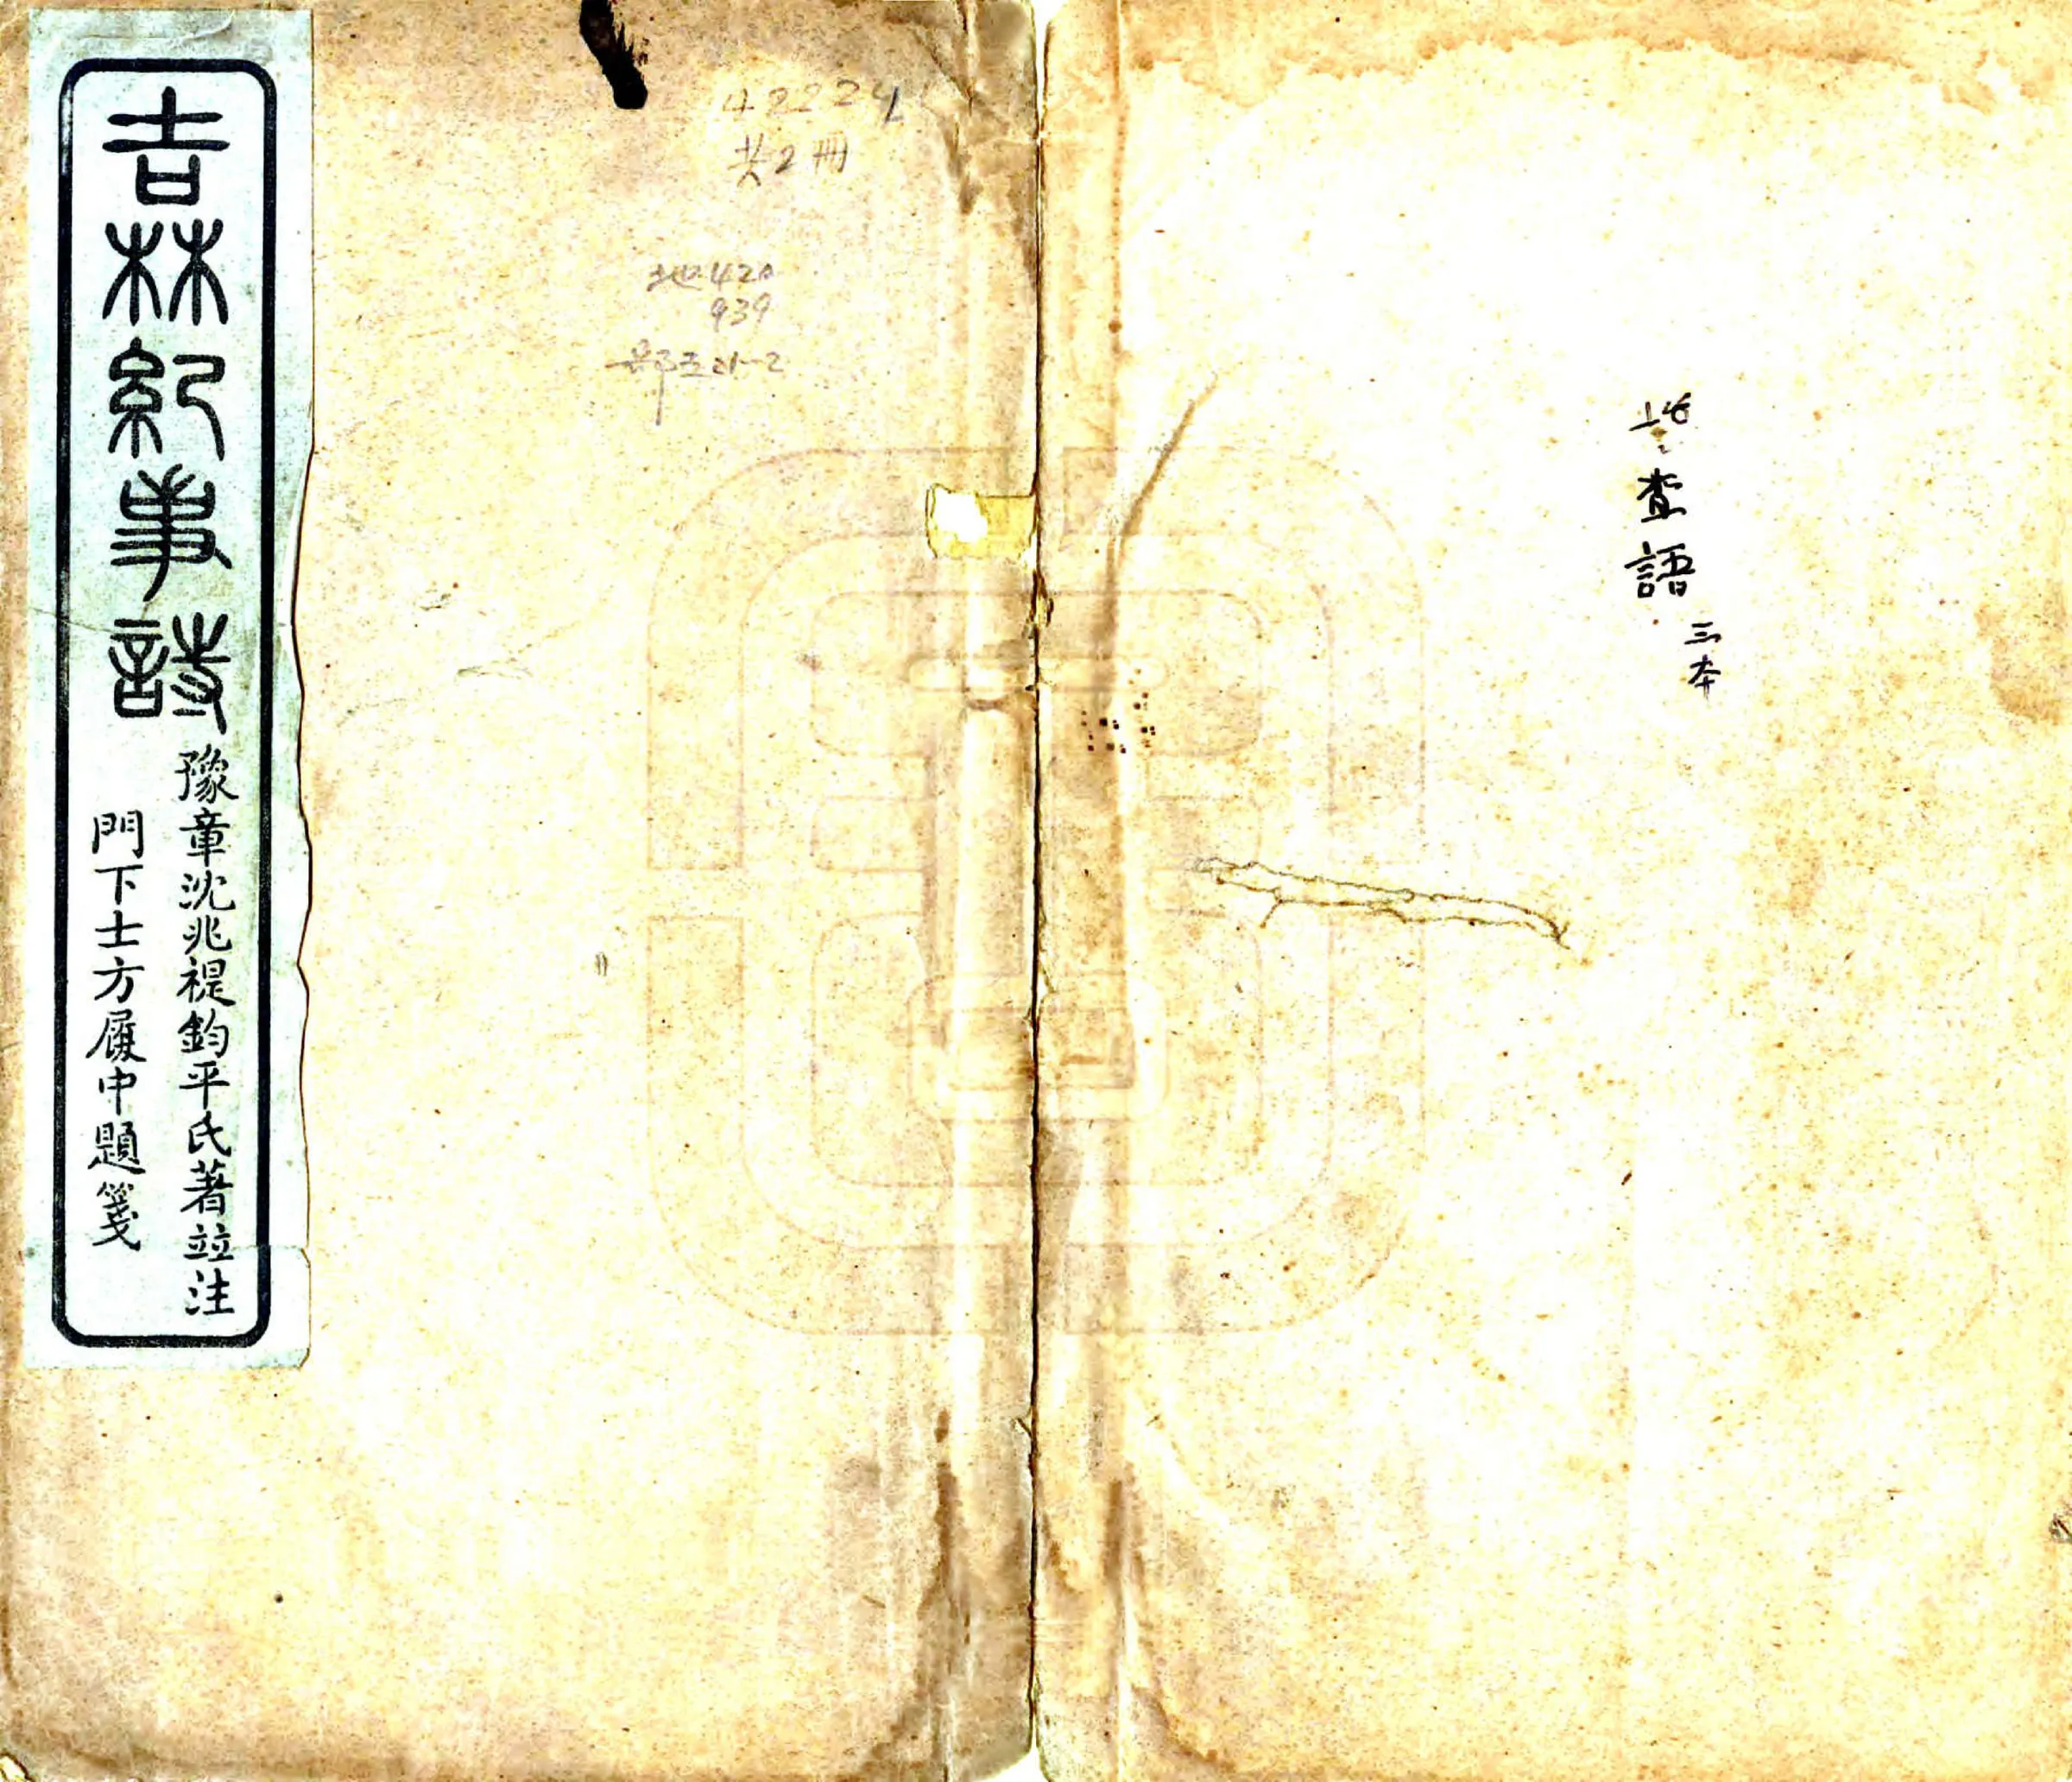 吉林紀事詩
豫章沈兆禔鈞平氏著竝注
門下士方履中題箋
42224
共2冊
地420
939
查語
三本